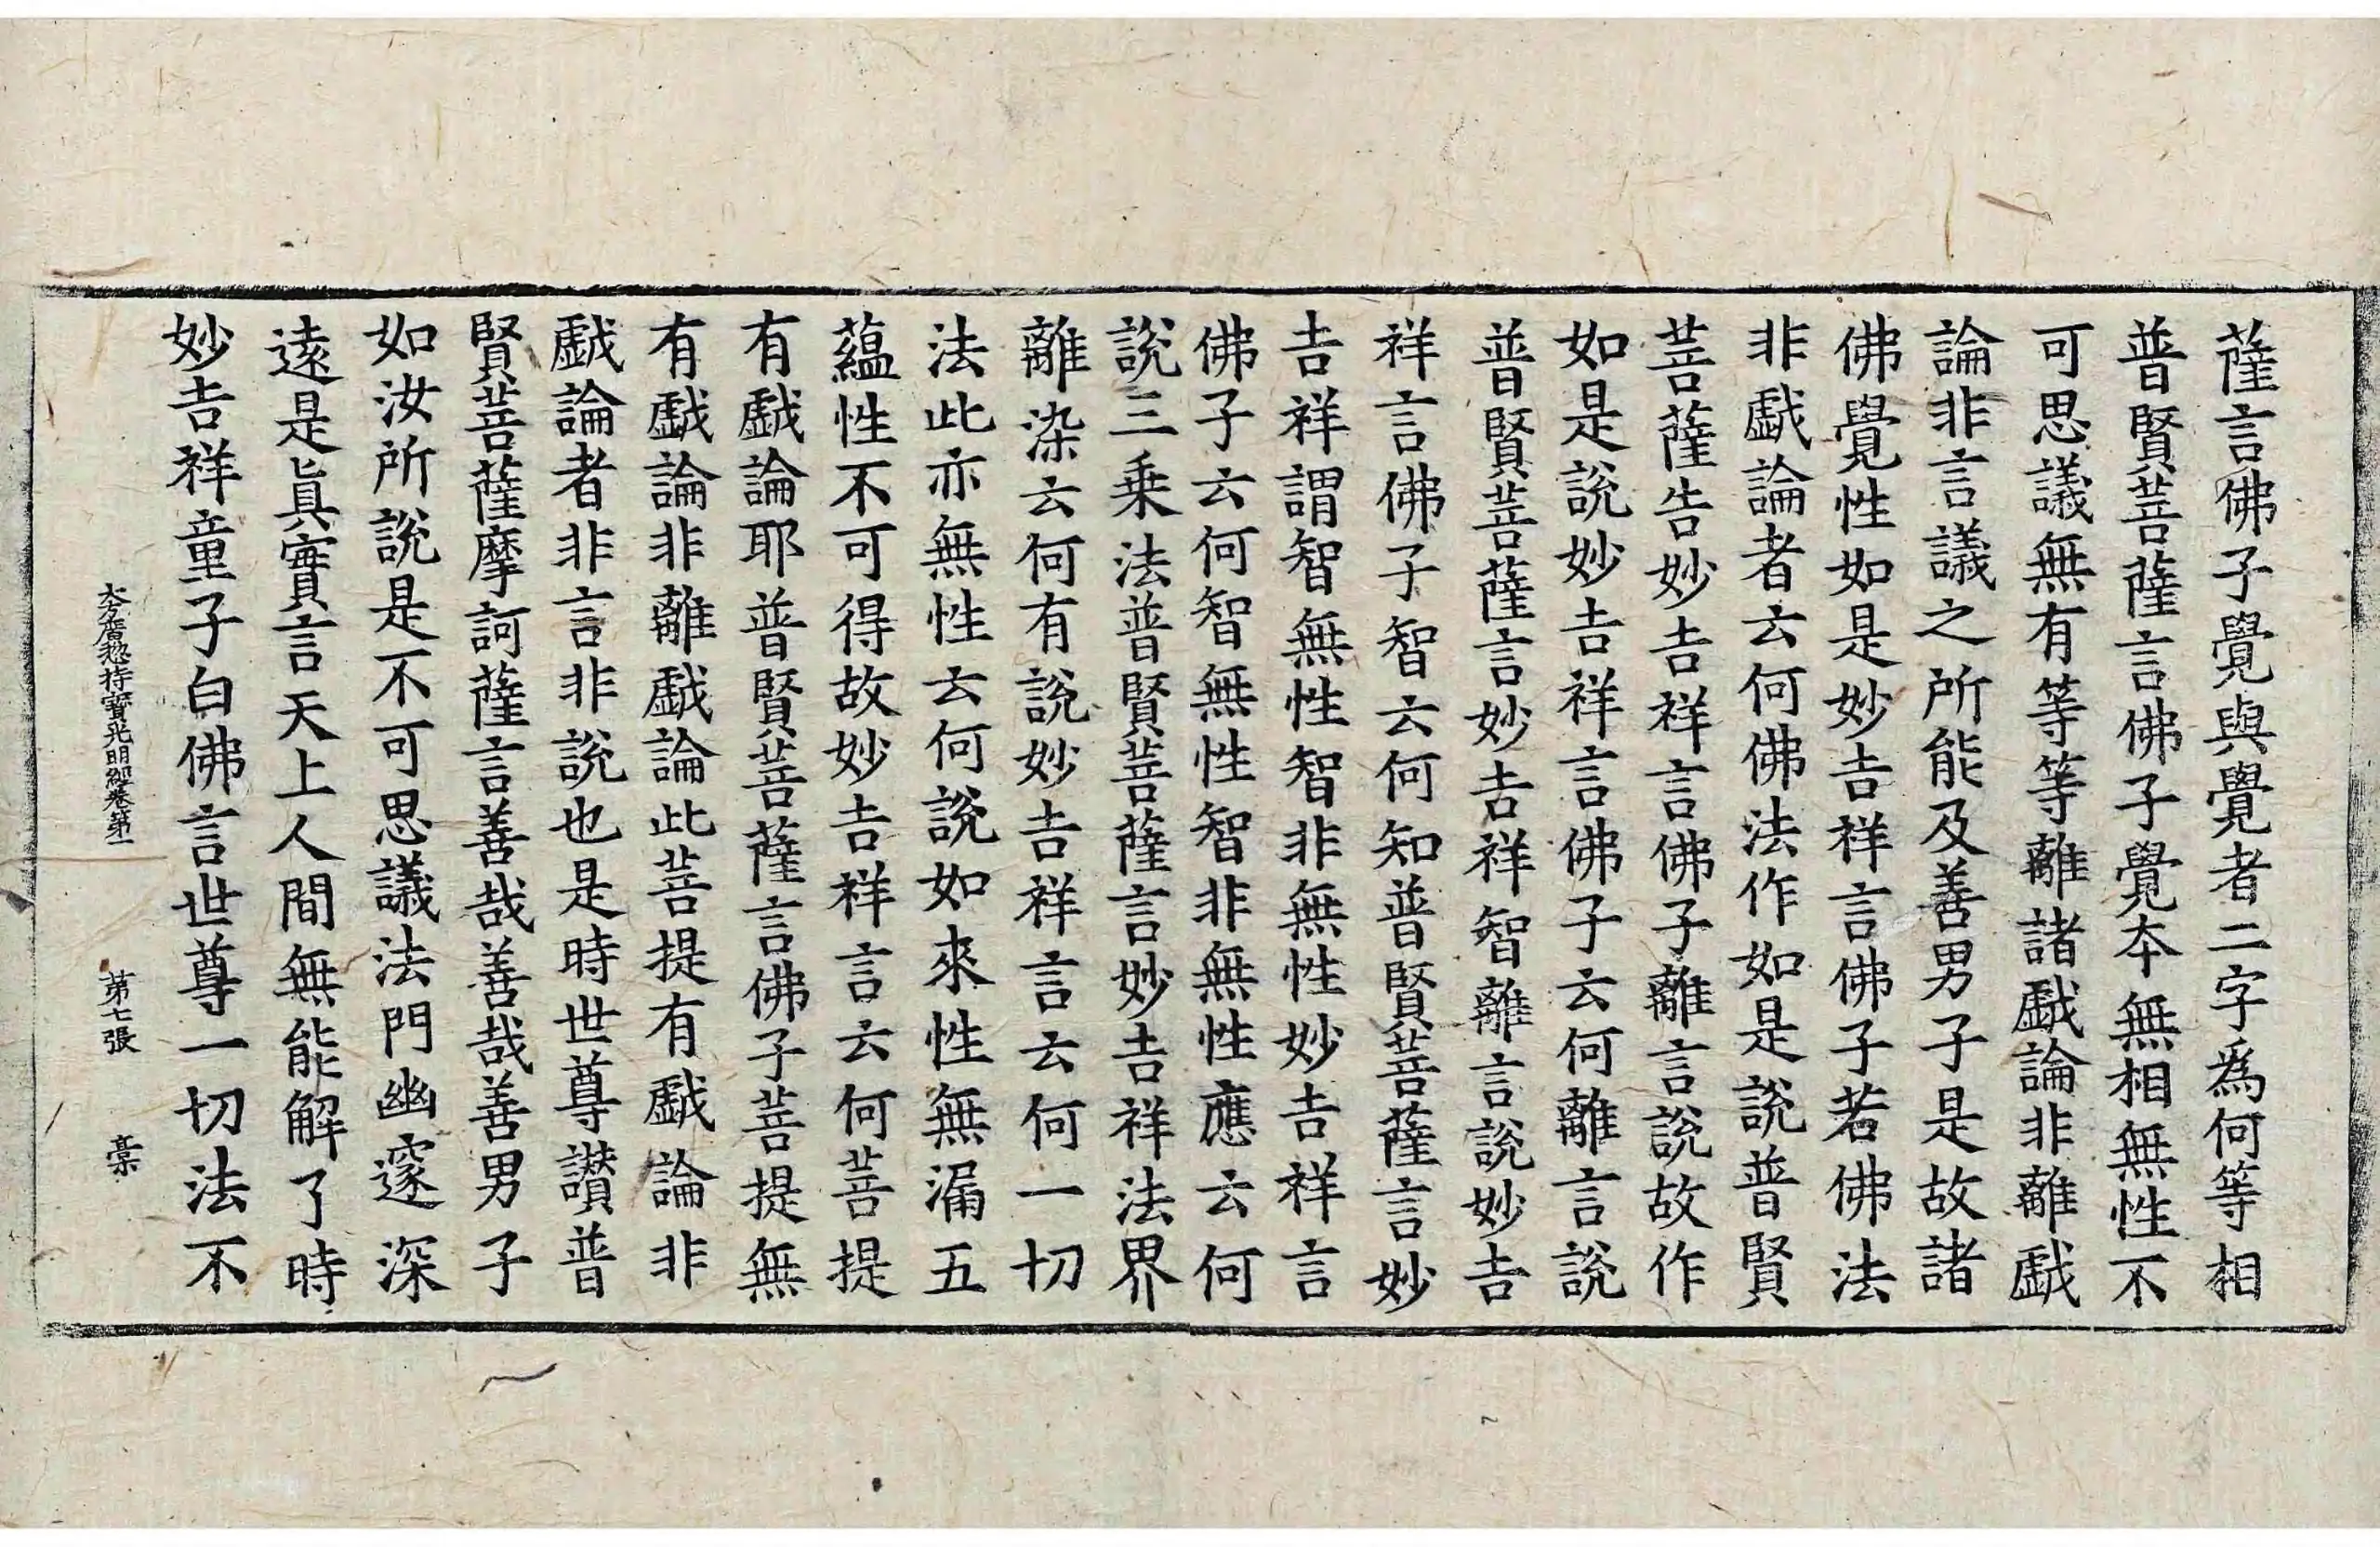 薩言佛子覺與覺者二字爲何等相
普賢菩薩言佛子覺夲無相無性不
可思議無有等等離諸戱論非離戱
論非言議之所能及善男子是故諸
佛覺性如是妙吉祥言佛子若佛法
非戱論者云何佛法作如是說普賢
菩薩告妙吉祥言佛子離言說故作
如是說妙吉祥言佛子云何離言說
普賢菩薩言妙吉祥智離言說妙吉
祥言佛子智云何知普賢菩薩言妙
吉祥謂智無性智非無性妙吉祥言
佛子云何智無性智非無性應云何
說三乗法普賢菩薩言妙吉祥法界
離染云何有說妙吉祥言云何一切
法此亦無性云何說如來性無漏五
蘊性不可得故妙吉祥言云何菩提
有戱論耶普賢菩薩言佛子菩提無
有戱論非離戱論此菩提有戱論非
戱論者非言非說也是時世尊讃普
賢菩薩摩訶薩言善哉善哉善男子
如汝所說是不可思議法門幽邃深
遠是眞實言天上人間無能解了時
妙吉祥童子白佛言世尊一切法不
大方廣揔持寳光明經卷第一 苐七張 槀